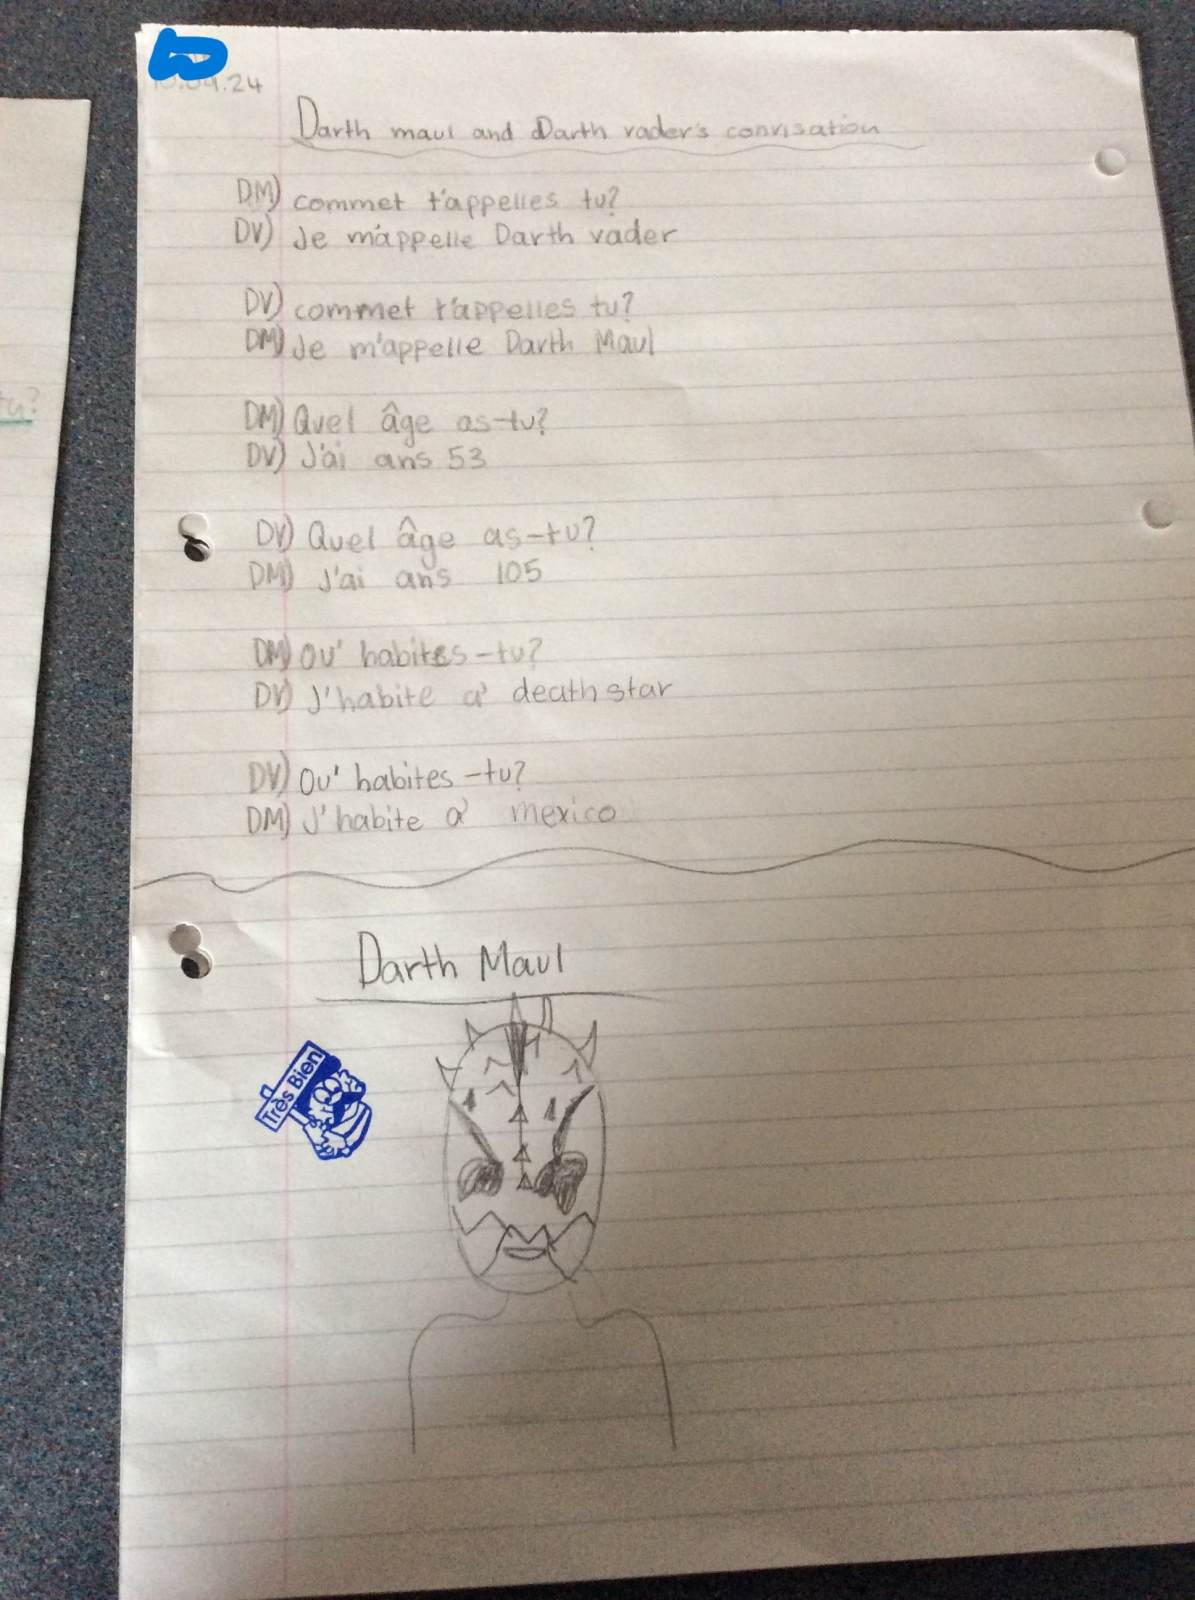 .24
Darth maul and Darth vader's convisation
DM) commet t'appelles tu?
DV) Je m'appelle Darth vader
DV) commet t'appelles tu?
DM) Je m'appelle Darth Maul
DM) Quel âge as-tu?
DV) J'ai ans 53
DV) Quel âge as-tu?
DM) J'ai ans 105
DM) Ou' habites-tu?
DV) J'habite a' death star
DV) Ou' habites-tu?
DM) J'habite a' mexico
Darth Maul
Très Bien